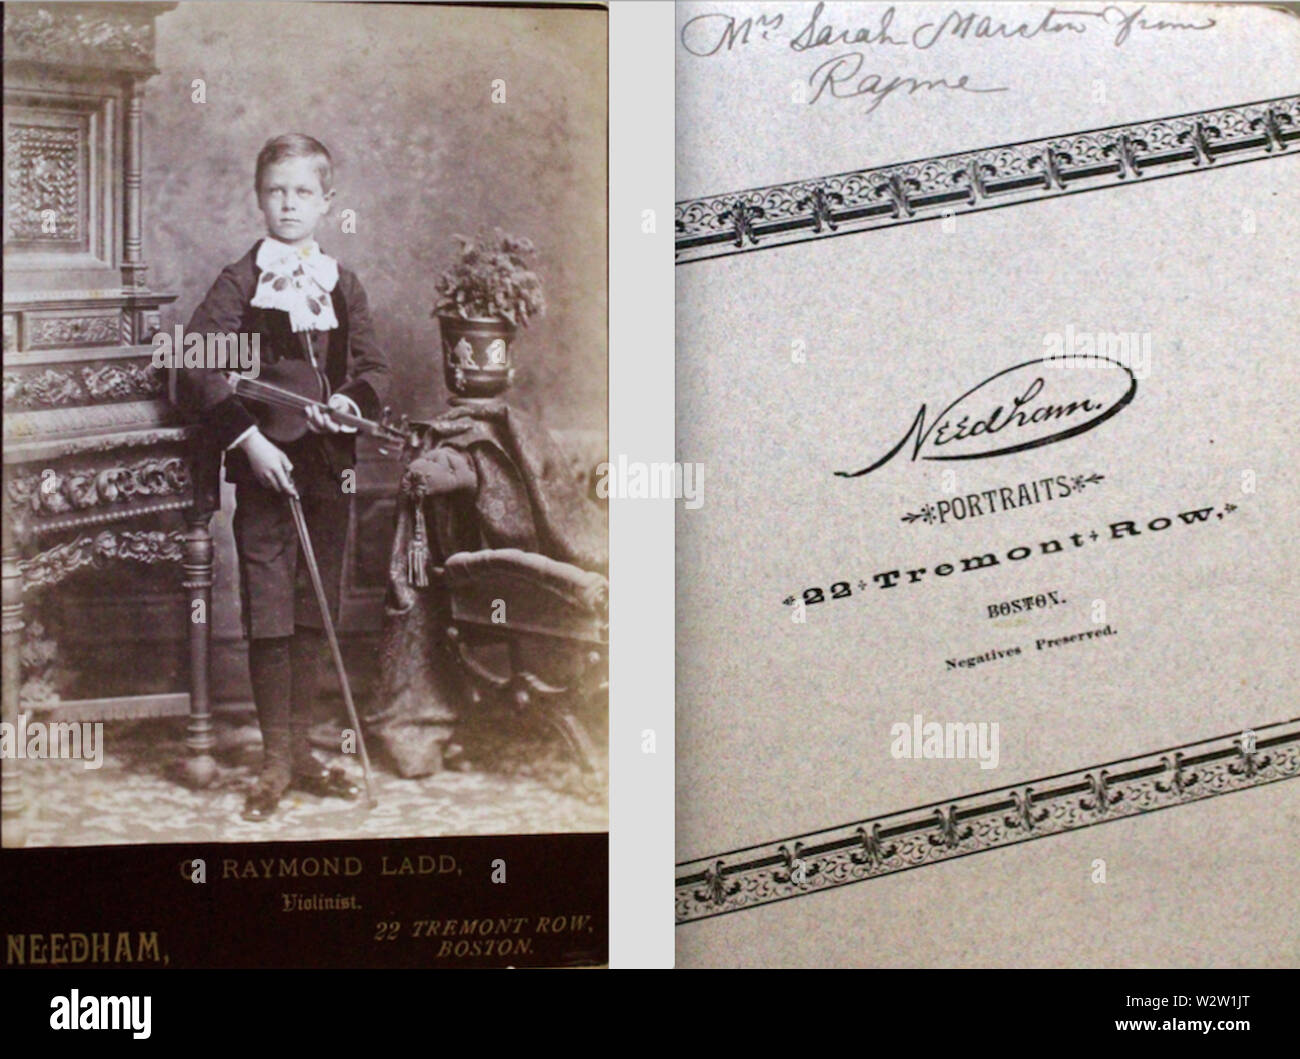 C. RAYMOND LADD,
Violinist.
NEEDHAM,
22 TREMONT ROW,
BOSTON.
Mrs Sarah Marston from
Rayme
Needham.
PORTRAITS
22 Tremont Row,
BOSTON.
Negatives Preserved.
alamy
alamy
Image ID: W2W1JT
www.alamy.com